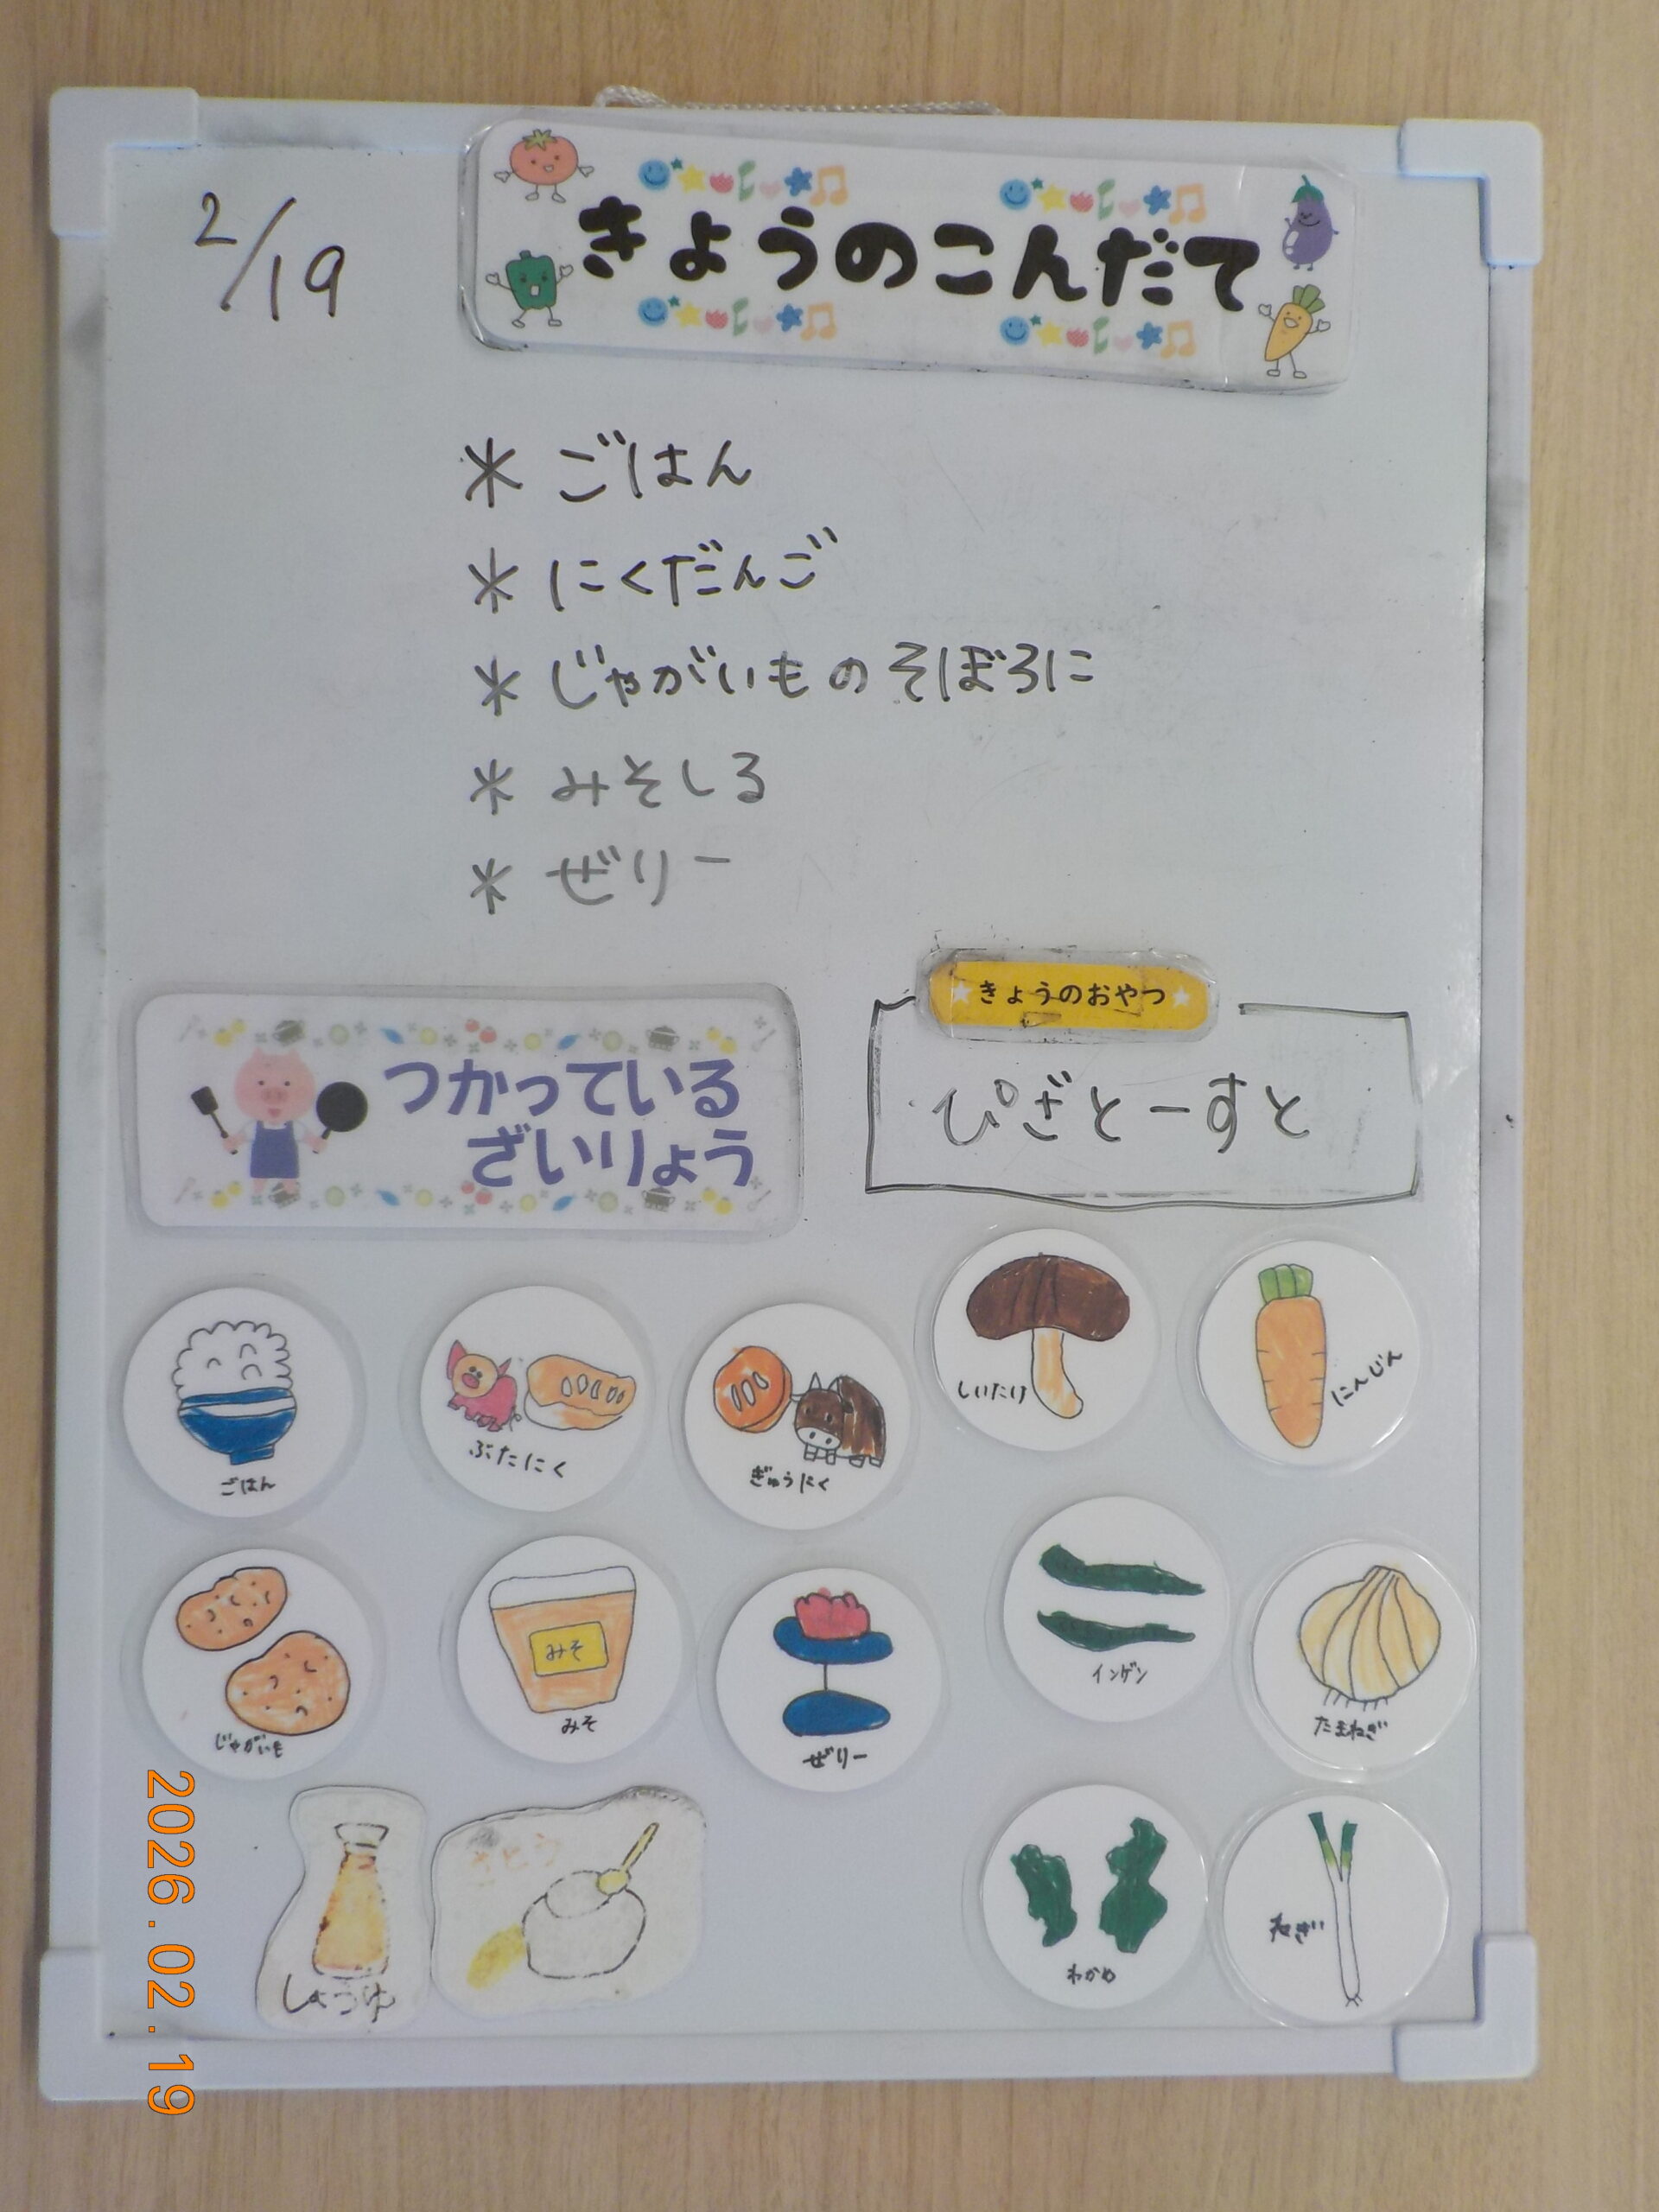 2/19
きょうのこんだて
* ごはん
* にくだんご
* じゃがいものそぼろに
* みそしる
* ぜりー
きょうのおやつ
ぴざとーすと
つかっている
ざいりょう
ごはん
ぶたにく
ぎゅうにく
しいたけ
にんじん
じゃがいも
みそ
みそ
ぜりー
インゲン
たまねぎ
しょうゆ
さとう
わかめ
ねぎ
2026.02.19